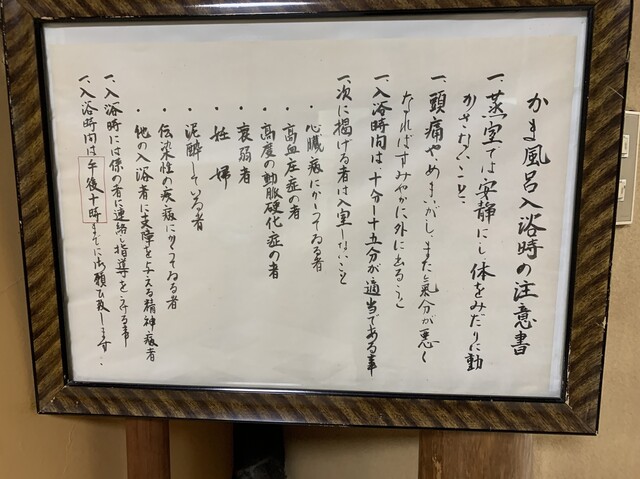 かま風呂入浴時の注意書
一、蒸室では安静にし体をみだりに動
かさないこと、
一、頭痛や、めまいがし、また氣分が悪く
なればすみやかに外に出ること
一、入浴時間は、十分ー十五分が適当である事
一、次に掲げる者は入室しないこと
・心臓病にかかってゐる者
・高血圧症の者
・高度の動脈硬化症の者
・衰弱者
・妊婦
・泥酔している者
・伝染性の疾病にかかってゐる者
・他の入浴者に支障を与える精神病者
一、入浴時には係の者に連絡し指導をうける事
一、入浴時間は午後十時までに御願ひ致します.